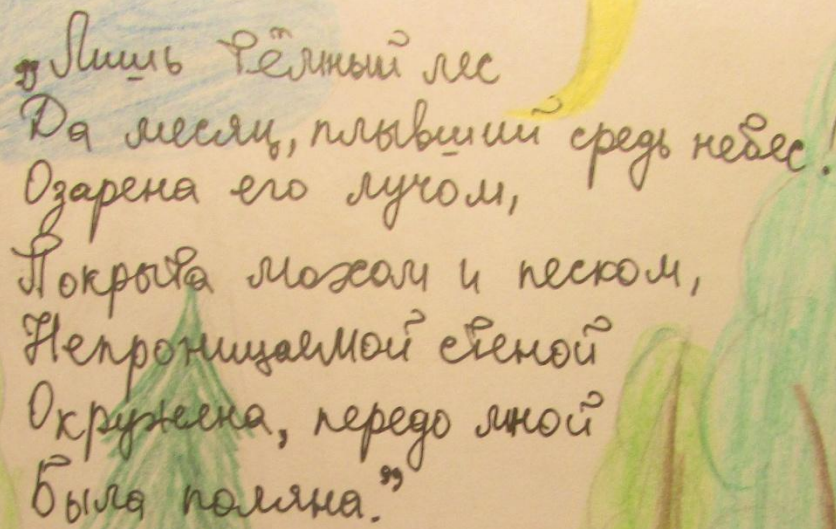 „Лишь тёмный лес
Да месяц, плывший средь небес!
Озарена его лучом,
Покрыта мохом и песком,
Непроницаемой стеной
Окружена, передо мной
Была поляна."